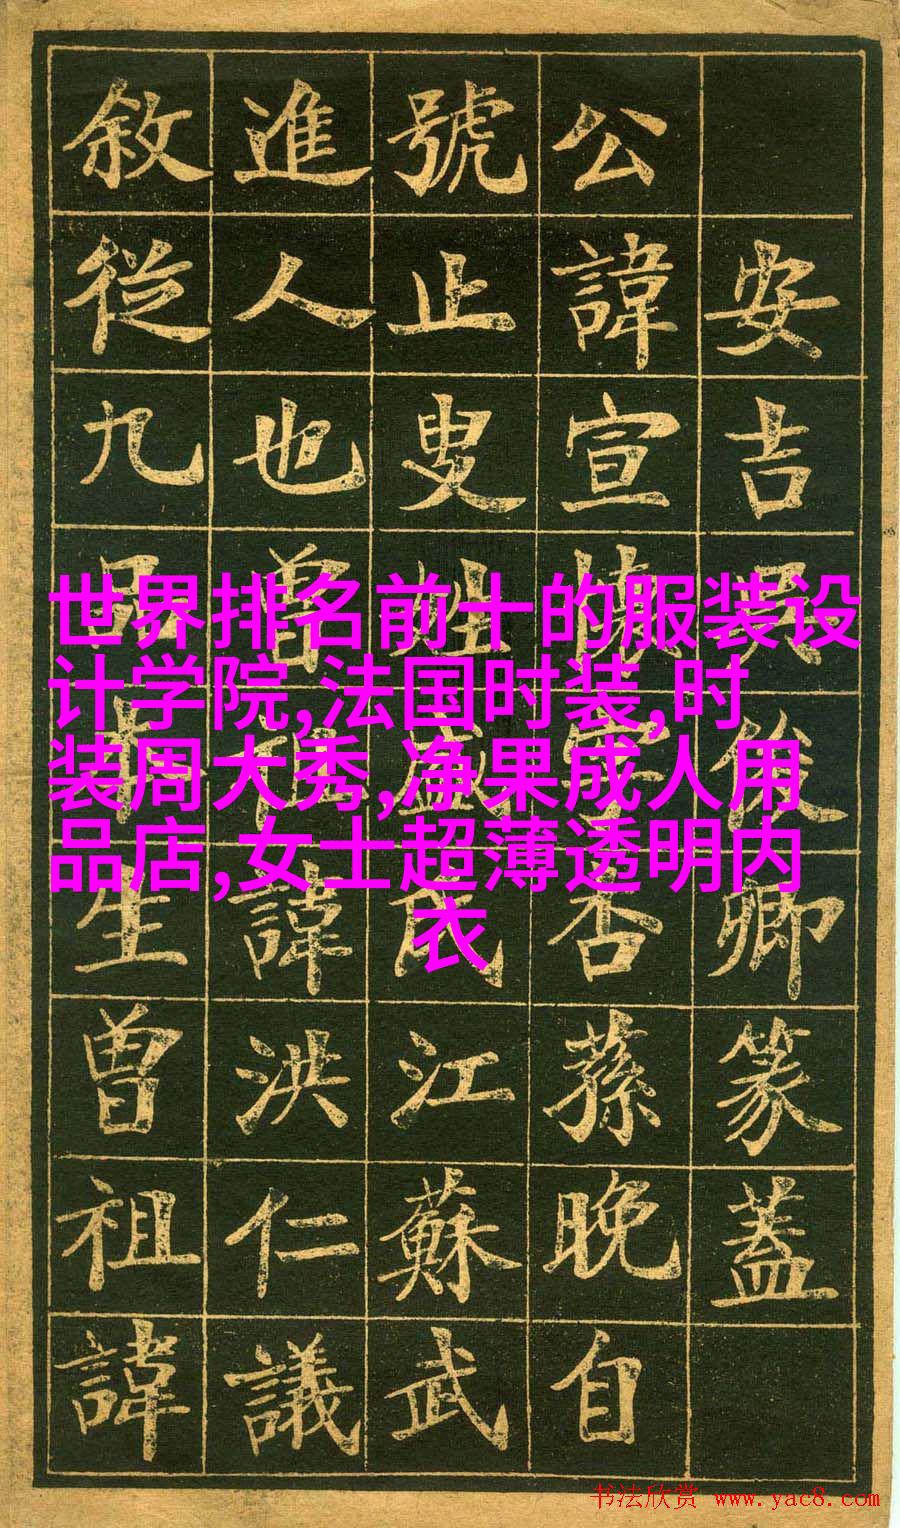 安吉吳俊卿篆蓋
公諱宣懷字杏蓀晚自
號止叟姓盛氏江蘇武
進人也曾祖諱洪仁議
敘從九品生曾祖諱
世界排名前十的服装设
计学院,法国时装,时
装周大秀,净果成人用
品店,女士超薄透明内
衣
书法欣赏 www.yac8.com